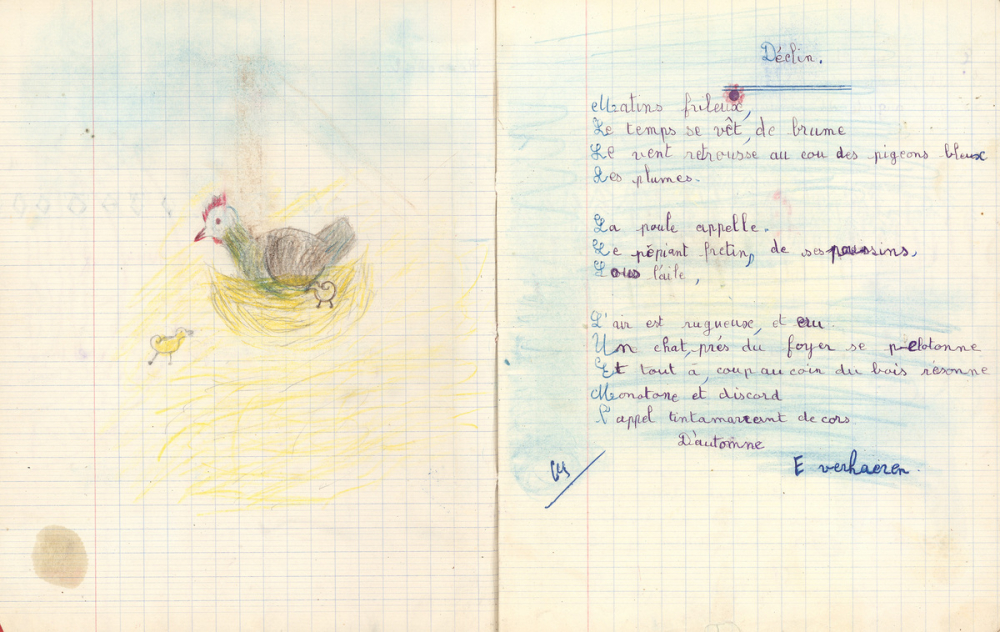 Déclin.
Matins frileux,
Le temps se vêt, de brume
Le vent retrousse au cou des pigeons bleux
Les plumes.
La poule appelle.
Le pépiant fretin, de ses poussins,
Sous l'aile,
L'air est rugueux, et cru.
Un chat, près du foyer se pelotonne
Et tout à, coup au coin du bois résonne
Monotone et discord
L'appel tintamarrant de cors
D'automne
E verhaeren.